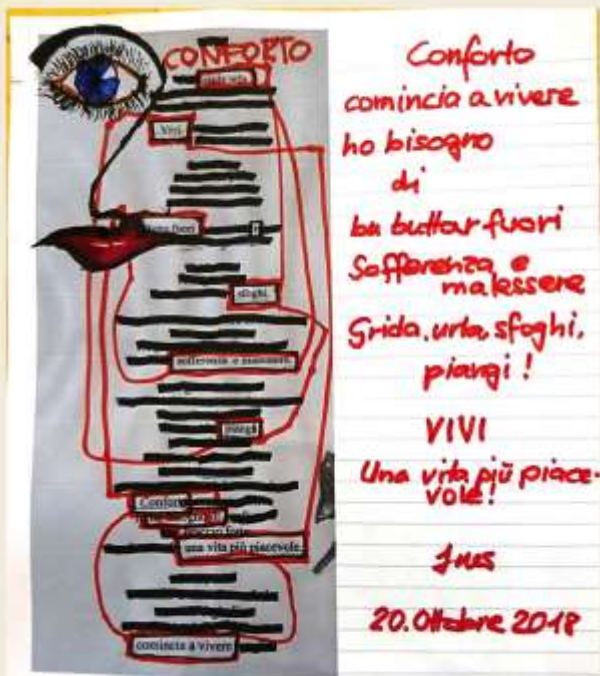 CONFORTO
Vivi
fuori
e
sfoghi
sofferenza e malessere
piangi
Conforto
una vita più piacevole
comincia a vivere
Conforto
comincia a vivere
ho bisogno
di
buttar fuori
Sofferenza e
malessere
Grida, urla, sfoghi,
piangi!
VIVI
Una vita più piace-
vole!
Ines
20. Ottobre 2018